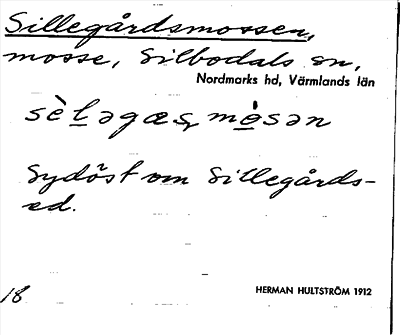 Sillegårdsmossen,
mosse, Silbodals sn,
Nordmarks hd, Värmlands län
Sydöst om Sillegårds-
ed.
18
HERMAN HULTSTRÖM 1912